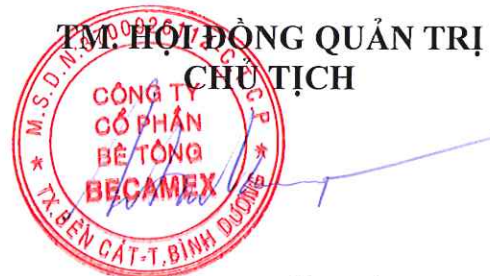 TM. HỘI ĐỒNG QUẢN TRỊ
CHỦ TỊCH
C.T.C.P
CÔNG TY
CỔ PHẦN
BÊ TÔNG
BECAMEX
TX.BẾN CÁT-T.BÌNH DƯƠNG